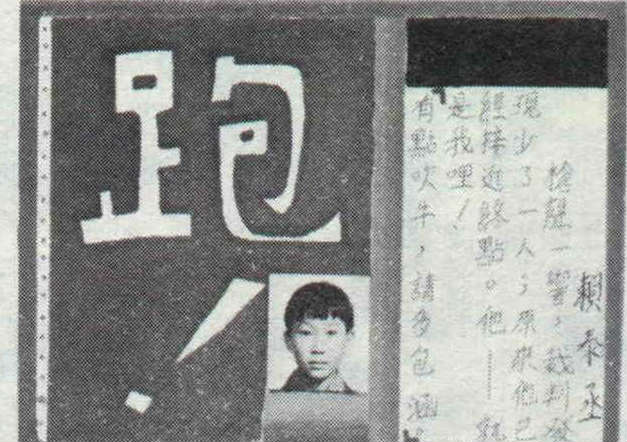 跑
賴泰丞
槍聲一響,裁判發
現少了一人;原來他已
經接近終點。他——就
是我哩!
有點吹牛,請多包涵。